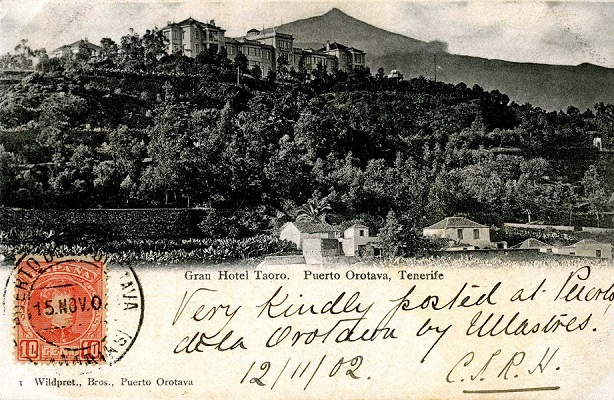 Gran Hotel Taoro. Puerto Orotava, Tenerife
Very Kindly posted at Puerto
de la Orotava by
12/11/02. C.S.R.H.
ESPAÑA
15.NOV.0
10 CENT 10
1 Wildpret., Bros., Puerto Orotava